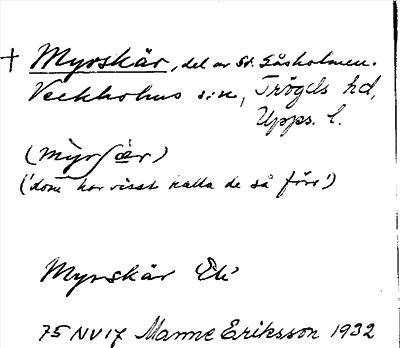 † Myrskär, del av St. Gåsholmen.
Veckholms sn, Trögds hd,
Upps. l.
(mỳrʃær)
('dom har visst kalla de så förr')
Myrskär Ek
75 NV 17 Manne Eriksson 1932